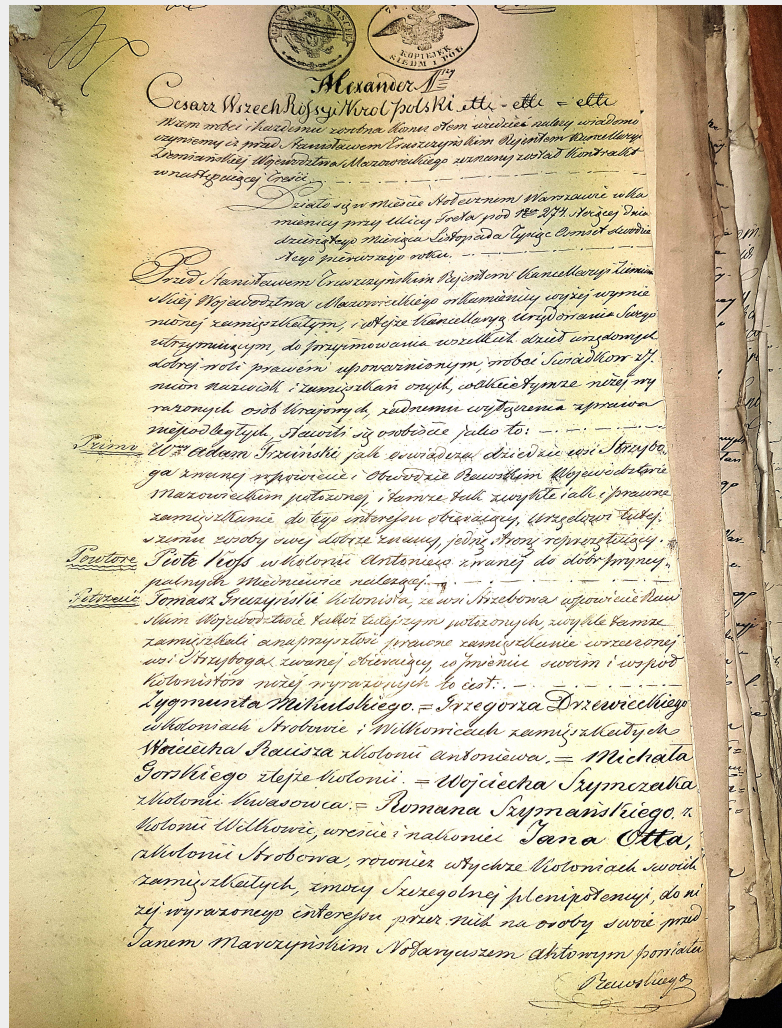 KOPIEJEK
SIEDM I PÓŁ
Alexander I
Cesarz Wszech Rossyi Krol Polski etti - etti = etti
Wszem wobec i każdemu zosobna komu otem wiedzieć należy wiadomo
czyniemy iż przed Stanisławem Truszczyńskim Rejentem Kancellaryi
Ziemiańskiey Województwa Mazowieckiego zeznany został Kontrakt
w następuiącey treści
Działo się w mieście Stołecznem Warszawie w ka
mienicy przy Ulicy Freta pod Nro 274 stoiącey dnia
dziewiątego miesiąca Listopada Tysiąc Osmset dwudzie
stego pierwszego roku.
Przed Stanisławem Truszczyńskim Rejentem Kancellaryi Ziemiań
skiéy Województwa Mazowieckiego w kamienicy wyżey wymie
nioney zamięszkałym, i w teyże Kancellaryą Urzędowania Swego
utrzymuiącym, do przyimowania wszelkich dzieł urzędowych
dobrey woli prawem upoważnionym, wobec Swiadkow z Ji
mion nazwisk i zamięszkań onych, w akcie tymże niżey wy
rażonych osób kraiowych, żadnemu wyłączeniu z prawa
niepodległych, stawili się osobiście iako to:
Primo Wny Adam Trzciński jak oświadcza dziedzic wsi Strzybo
ga zwaney w powiecie i Obwodzie Rawskim Województwie
Mazowieckim położoney i tamże tak zwykłe iak i prawne
zamięszkanie do tego interessu obieraiący, Urzędowi tutey
szemu z osoby swey dobrze znany, jednę stronę reprezętuiący.
Powtore Piotr Kofs w kolonii Antoniew zwaney do dóbr pryncy
palnych Miedniewice należącey.
Potrzecie Tomasz Gruzyński kolonista, ze wsi Strzebowa w powiecie Raw
skim Województwie także tuteyszym położonych, zwykle tamże
zamięszkali a na przyszłość prawne zamięszkanie w rzeczoney
wsi Strzyboga zwaney obieraiący, w Jmieniu swoim i wspoł
kolonistow niżey wyrażonych to iest:
Zygmunta Mikulskiego. = Grzegorza Drzewieckiego
w koloniach Strobowie i Wilkowicach zamięszkałych
Woiciecha Raiisza z kolonii Antoniewa. = Michała
Gorskiego z teyże kolonii. = Wojciecha Szymczaka
z kolonii Kwasowca: = Romana Szymańskiego, z
kolonii Wilkowic, wreście i nakoniec Jana Otta,
z kolonii Strobowa, rownież w tychże koloniach swoich
zamięszkałych, z mocy Szczegolney plenipotencyi, do ni
żéy wyrażonego interessu przez nich na osoby swoie przed
Janem Marczyńskim Notaryuszem Aktowym powiatu
Rawskiego